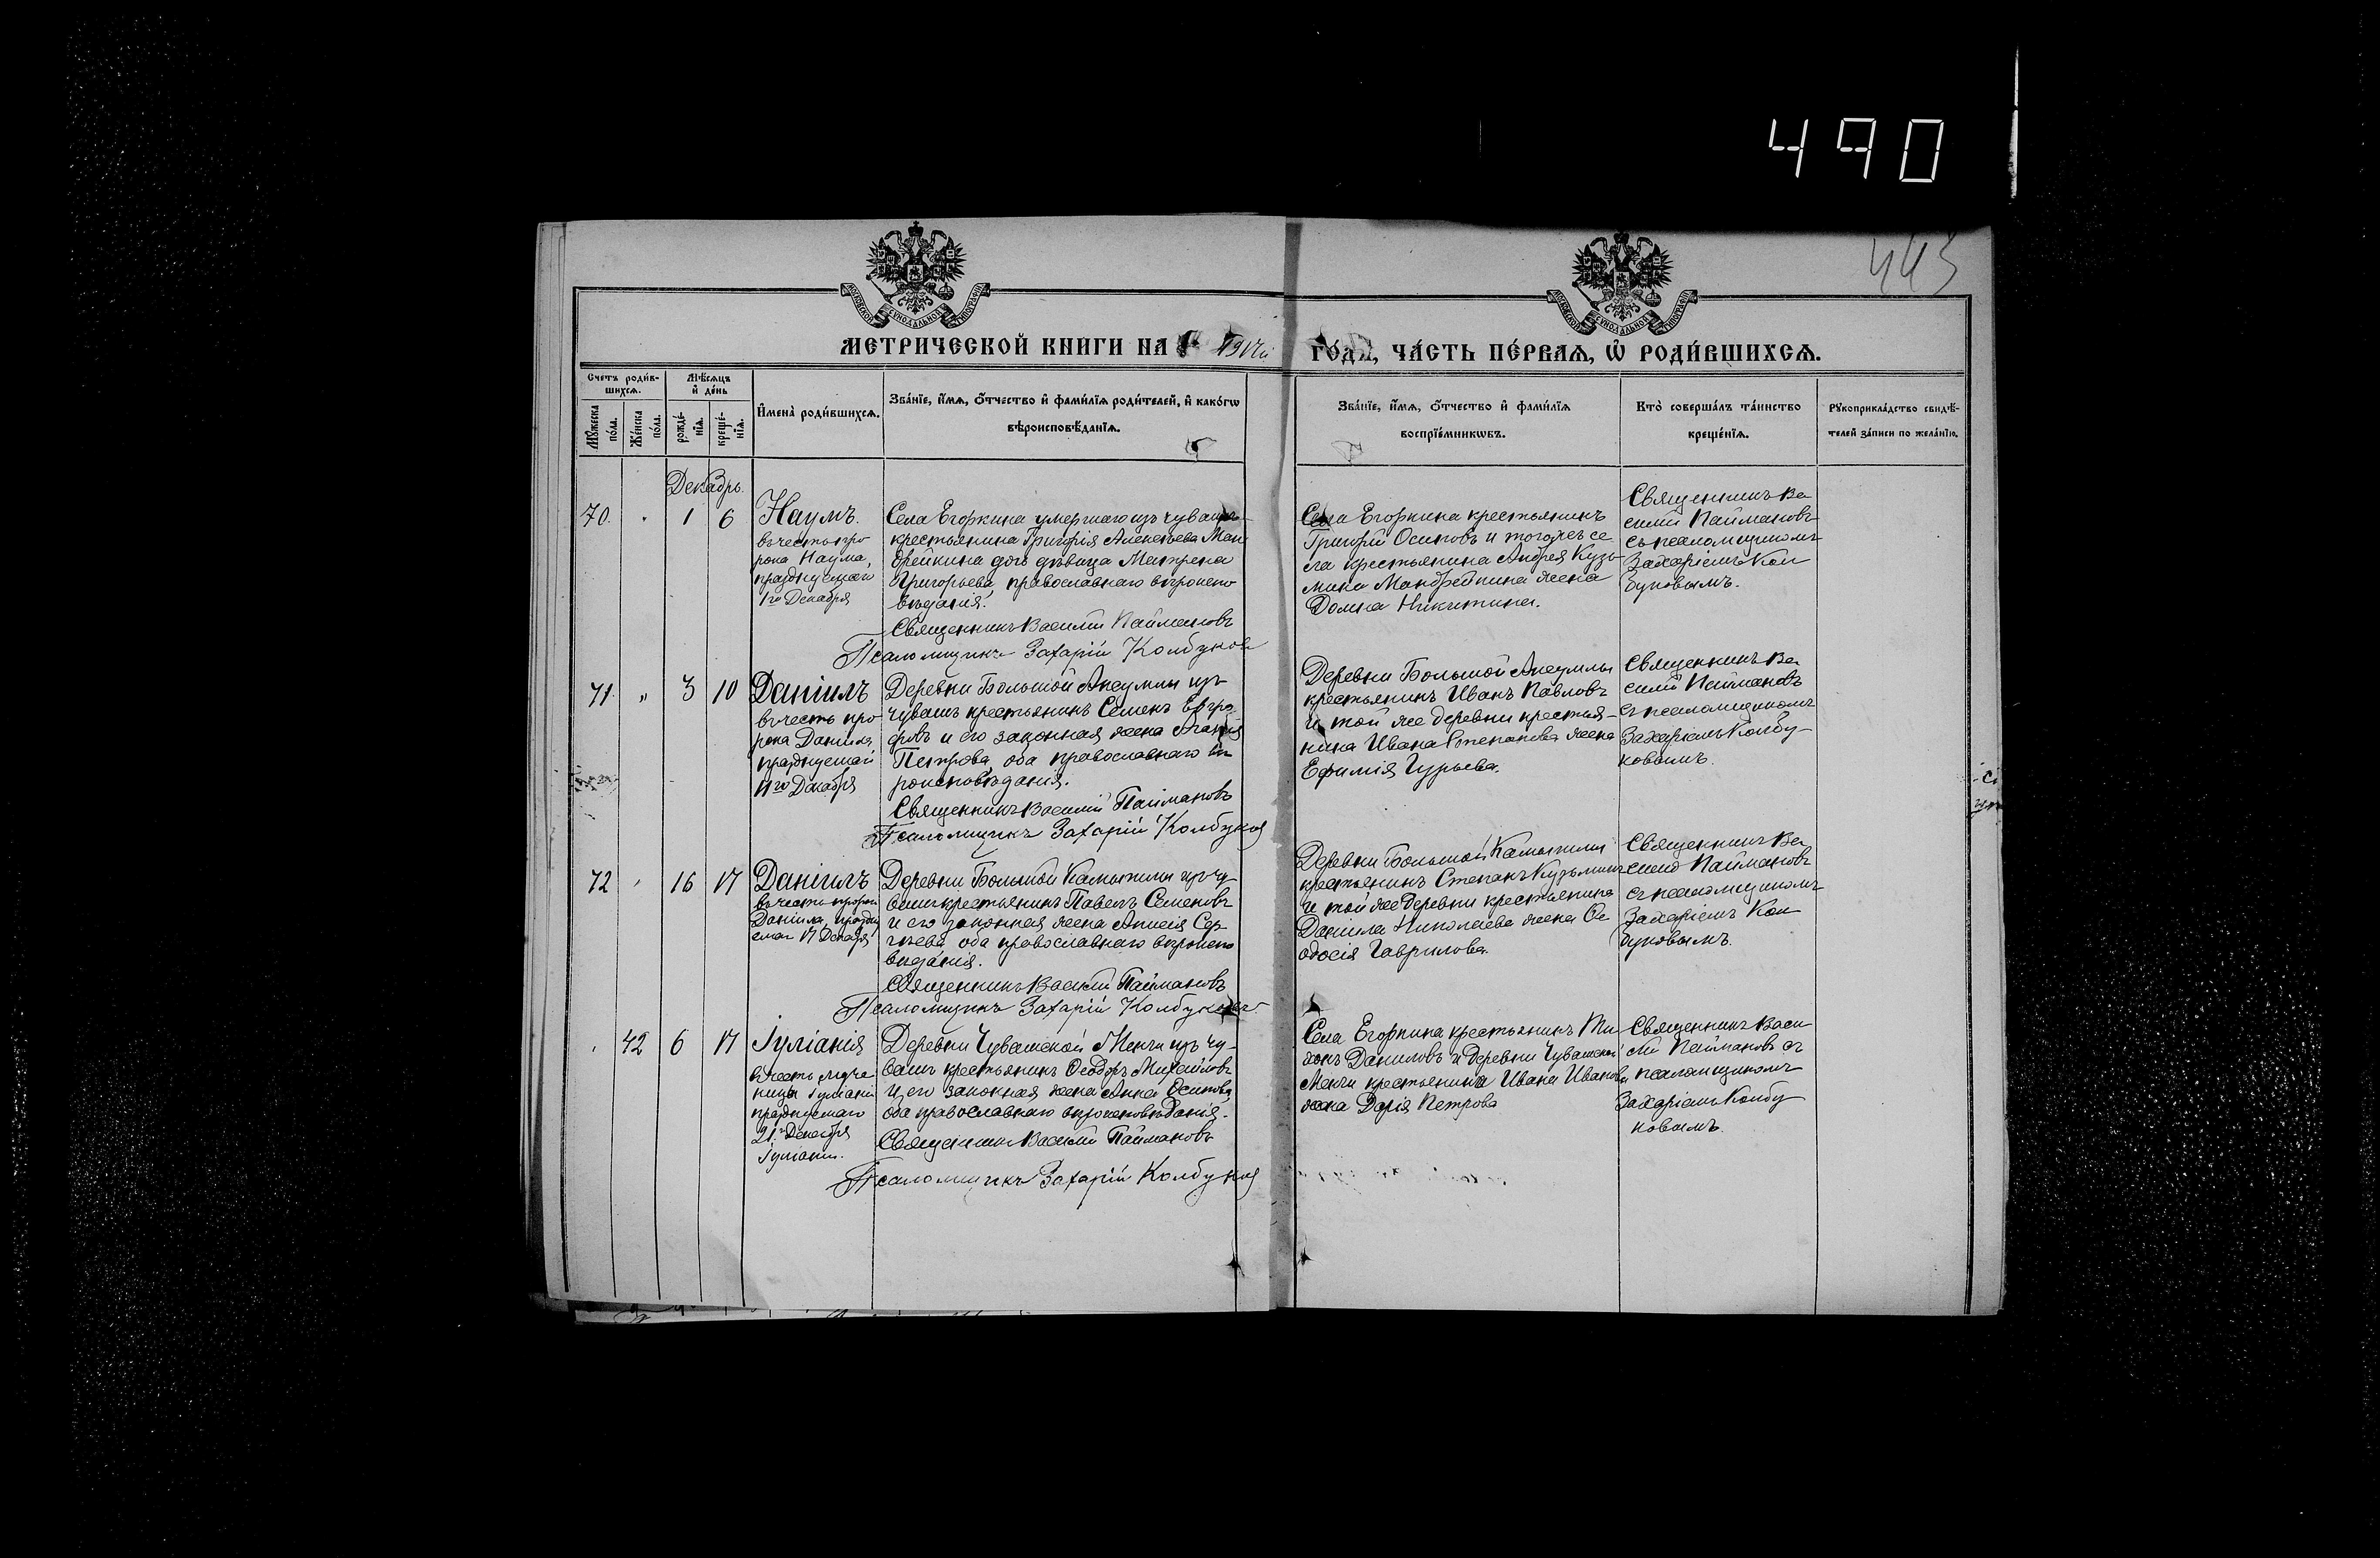 490
443
МОСКОВСКОЙ СѴНОДАЛЬНОЙ ТИПОГРАФІИ
МОСКОВСКОЙ СѴНОДАЛЬНОЙ ТИПОГРАФІИ
МЕТРИЧЕСКОЙ КНИГИ НА 1917й ГО́ДЪ, ЧА́СТЬ ПЕ́РВАѦ, Ѿ РОДИ́ВШИХСѦ.
Счетъ роди́в-
шихсѧ.
Мѣ́сѧцъ
и҆ де́нь
Мꙋ́жеска
по́ла.
Же́нска
по́ла.
рожде́-
нїѧ.
креще́-
нїѧ.
И҆мена̀ роди́вшихсѧ.
Зва́нїе, и҆́мѧ, о҆́тчество и҆ фами́лїѧ роди́телей, и҆ како́гѡ
вѣроисповѣ́данїѧ.
Зва́нїе, и҆́мѧ, о҆́тчество и҆ фами́лїѧ
воспрїе́мникѡвъ.
Кто̀ соверша́лъ та́инство
креще́нїѧ.
Рꙋкоприкла́дство свидѣ́-
телей за́писи по жела́нїю.
Декабрь.
70. " 1 6
Наумъ.
въ честь про
рока Наума,
празднуемаго
1го Декабря
Села Егоркина умершаго изъ чувашъ
крестьянина Григорія Алексѣева Ман
дрейкина дочь дѣвица Матрена
Григорьева, православнаго вѣроиспо
вѣданія.
Священникъ Василій Паймановъ
Псаломщикъ Захарій Колбуковъ
Села Егоркина крестьянинъ
Григорій Осиповъ и тогожъ се
ла крестьянина Андрея Кузь
мина Мандрейкина жена
Домна Никитина.
Священникъ Ва
силій Паймановъ
съ псаломщикомъ
Захаріемъ Кол
буковымъ.
71. " 3 10
Даніилъ
въ честь про
рока Даніила,
празднуемаго
17го Декабря
Деревни Большой Аксумлы изъ
чувашъ крестьянинъ Семенъ Евгра
фовъ и его законная жена Агафія
Петрова, оба православнаго вѣ
роисповѣданія.
Священникъ Василій Паймановъ
Псаломщикъ Захарій Колбуковъ
Деревни Большой Аксумлы
крестьянинъ Иванъ Павловъ
и той же деревни крестья-
нина Ивана Степанова жена
Ефимія Гурьева.
Священникъ Ва
силій Паймановъ
съ псаломщикомъ
Захаріемъ Колбу-
ковымъ.
72 " 16 17
Даніилъ
въ честь пророка
Даніила, праздну
емаго 17 Декабря
Деревни Большой Камыжлы изъ чу
вашъ крестьянинъ Павелъ Семеновъ
и его законная жена Анисія Сер
гѣева оба православнаго вѣроиспо
вѣданія.
Священникъ Василій Паймановъ
Псаломщикъ Захарій Колбуковъ
Деревни Большой Камыжлы
крестьянинъ Степанъ Кузьминъ
и той же деревни крестьянина
Даніила Николаева жена Ѳе
одосія Гаврилова.
Священникъ Ва
силій Паймановъ
съ псаломщикомъ
Захаріемъ Кол
буковымъ.
" 42 6 17
Іуліанія
въ честь муче
ницы Іуліаніи
празднуемаго
21го Декабря
Іуліаніи.
Деревни Чувашской Менчи изъ чу-
вашъ крестьянинъ Ѳеодоръ Михайловъ
и его законная жена Анна Осипова,
оба православнаго вѣроисповѣданія.
Священникъ Василій Паймановъ
Псаломщикъ Захарій Колбуковъ
Села Егоркина крестьянинъ Ти
хонъ Даниловъ и деревни Чувашской
Менчи крестьянина Ивана Иванова
жена Дарія Петрова
Священникъ Васи
лій Паймановъ съ
псаломщикомъ
Захаріемъ Колбу
ковымъ.